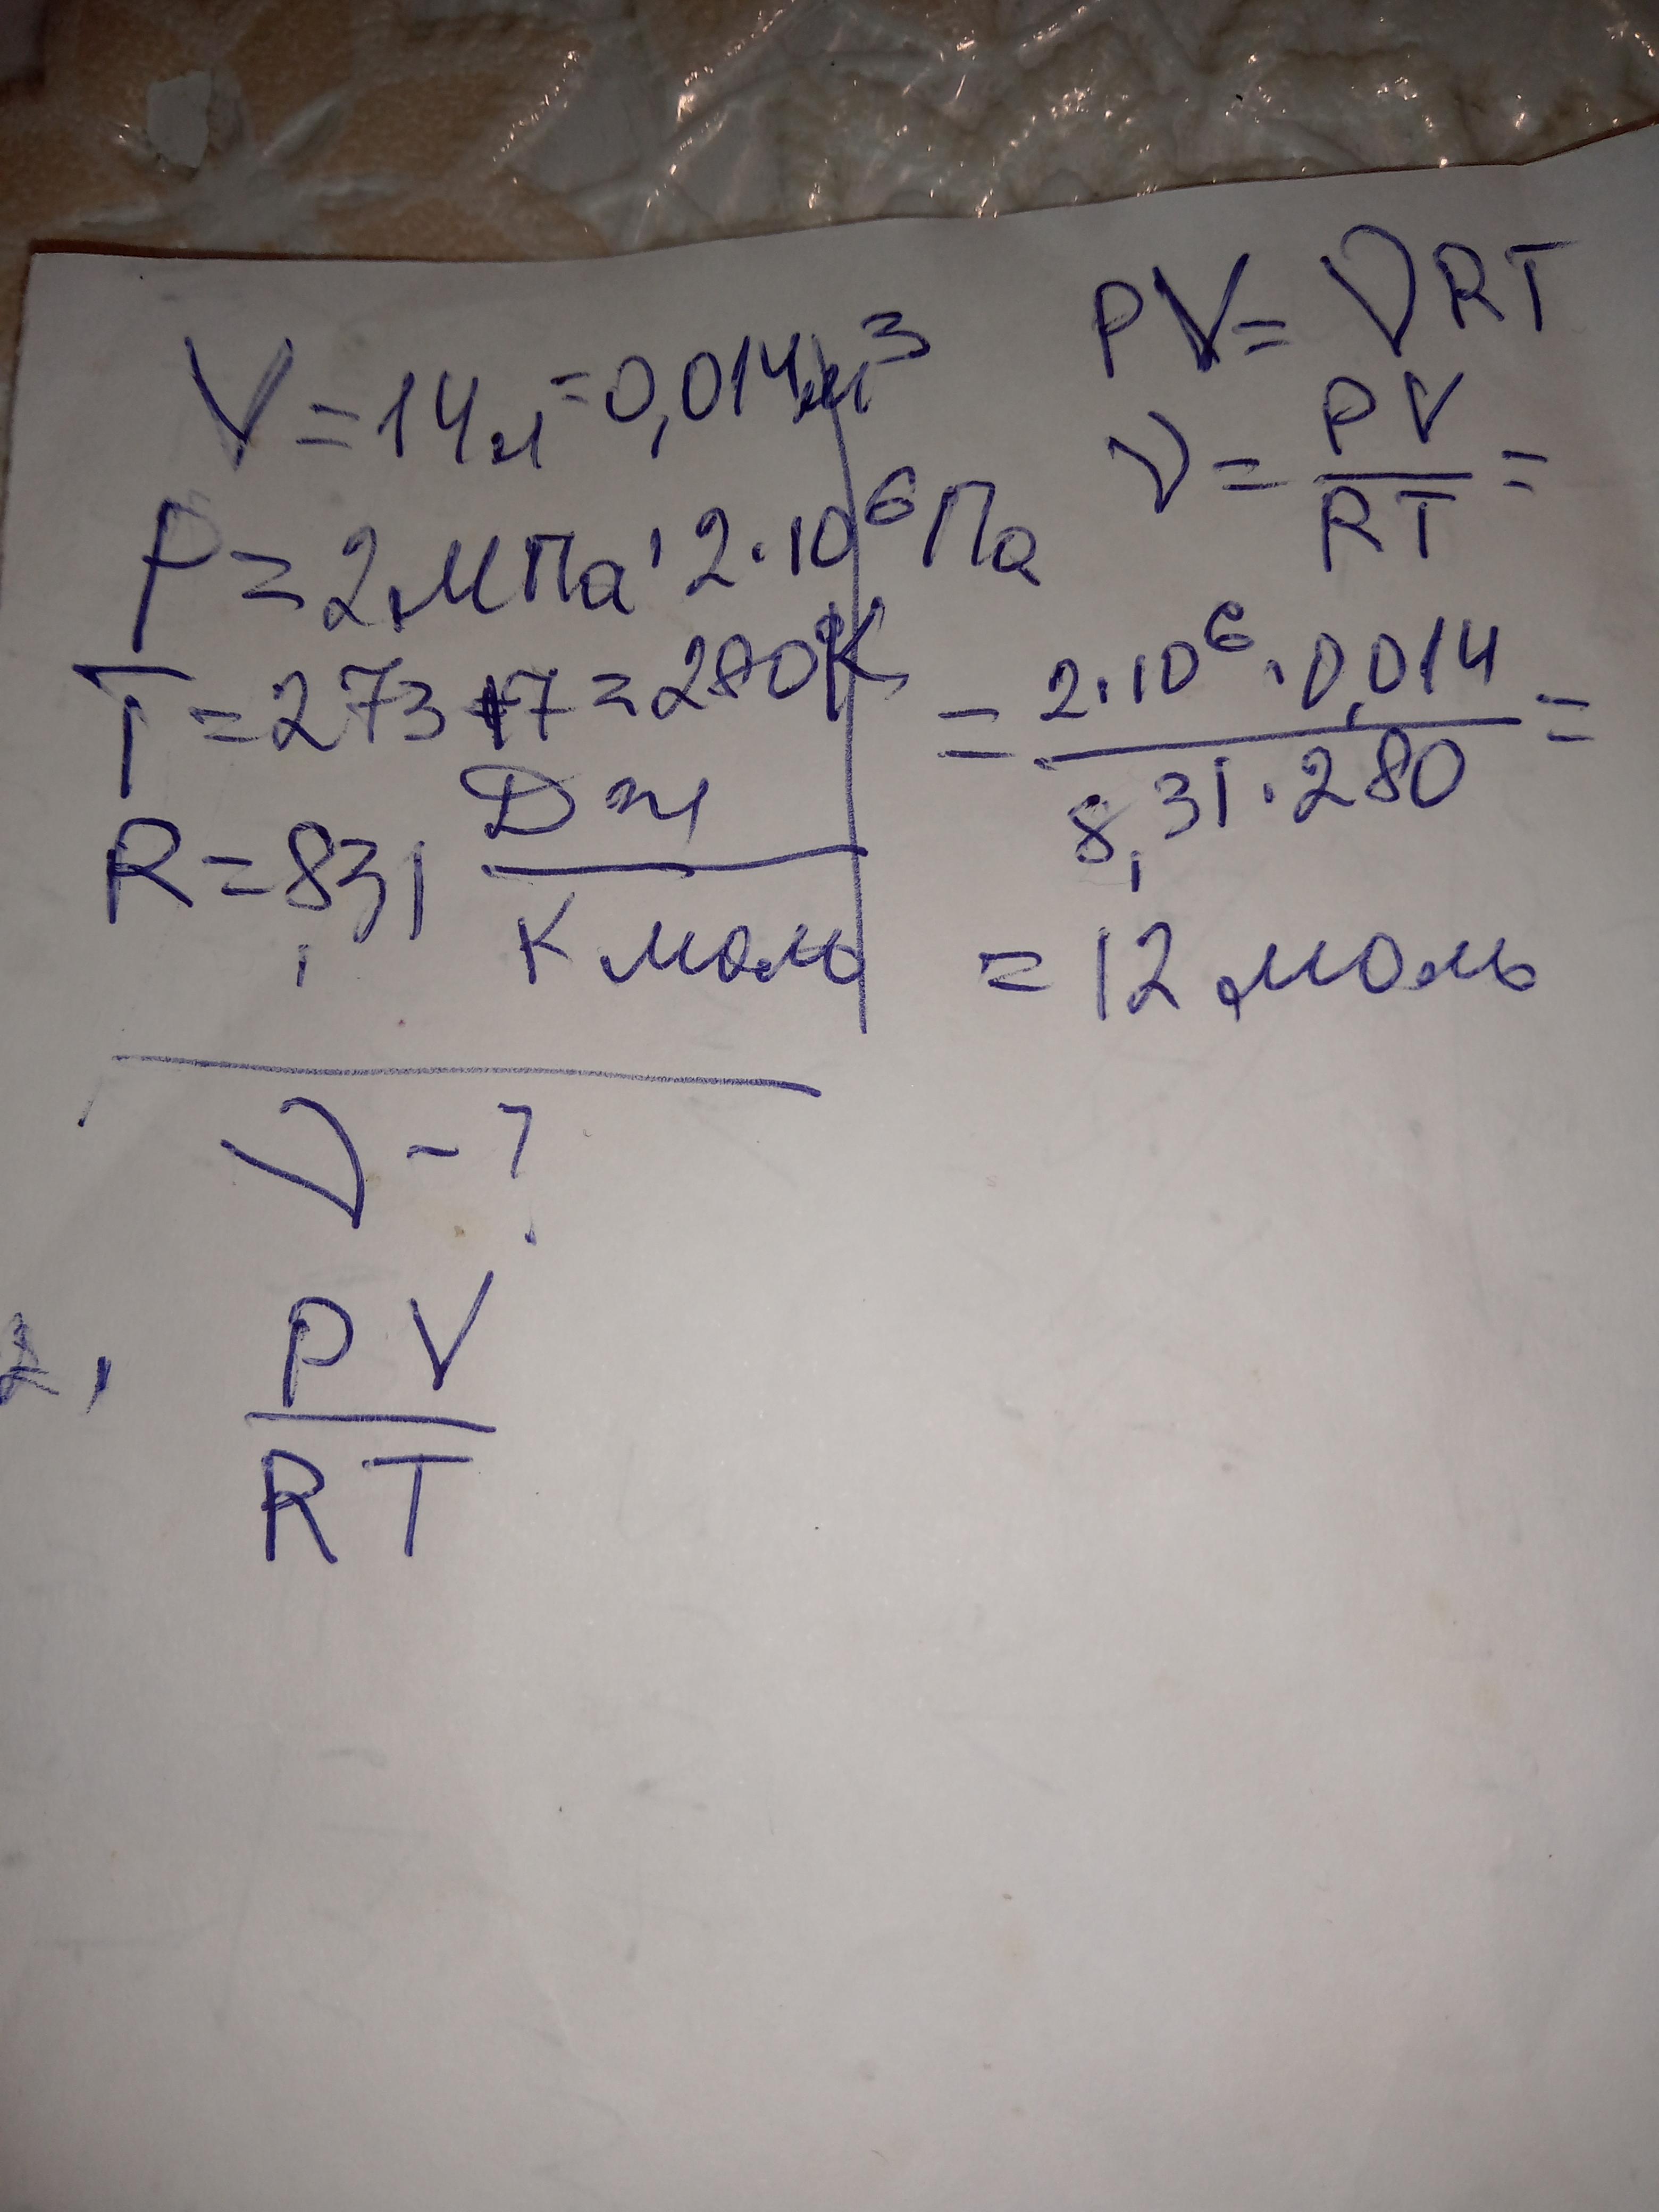 V = 14л = 0,014м³
P = 2мПа = 2·10⁶Па
T = 273+7 = 280К
R = 8,31 Дж/К моль
ν - ?
PV = νRT
ν = PV/RT =
= 2·10⁶·0,014/8,31·280 =
= 12 моль
2,
PV/RT